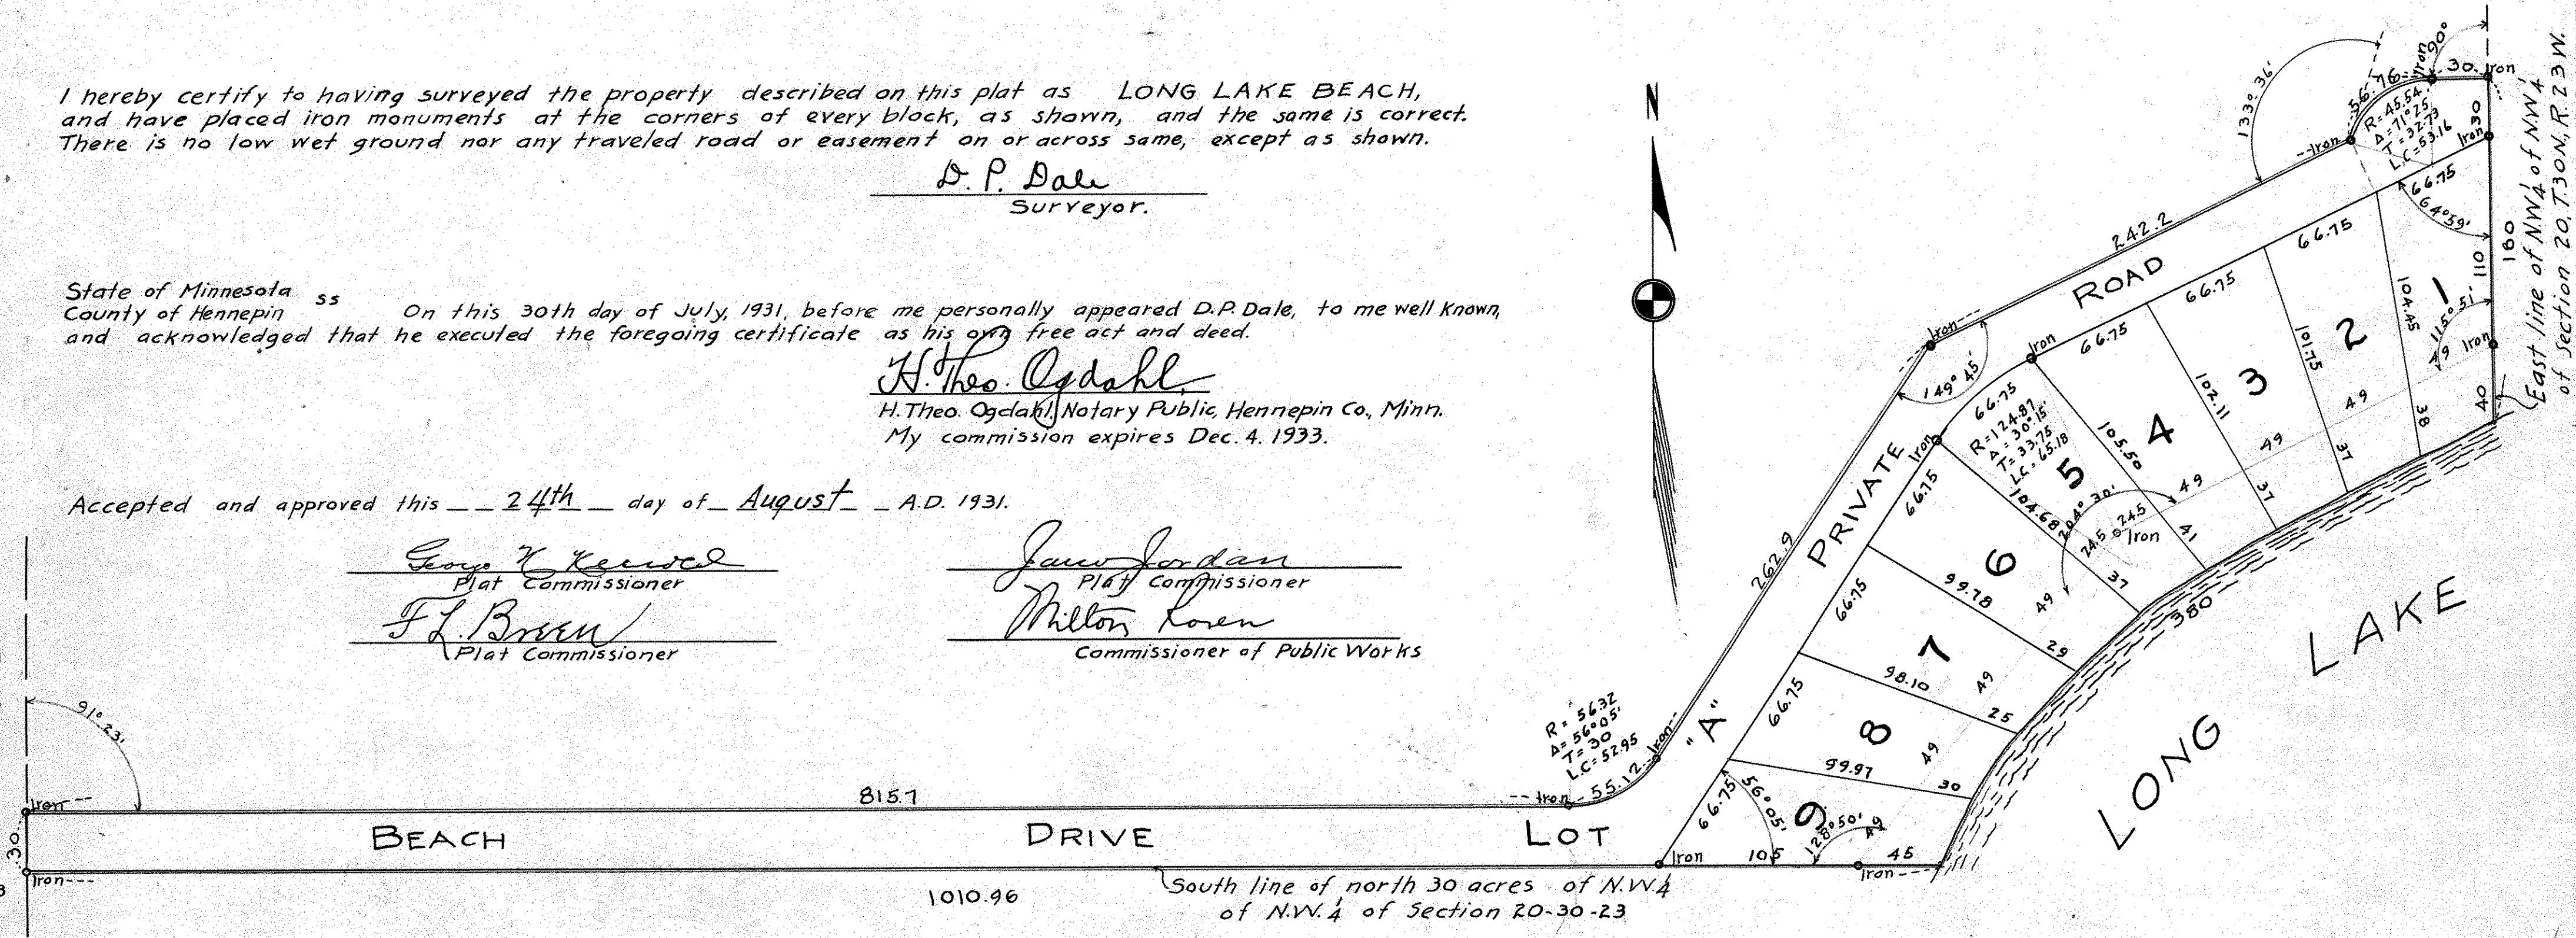 I hereby certify to having surveyed the property described on this plat as LONG LAKE BEACH,
and have placed iron monuments at the corners of every block, as shown, and the same is correct.
There is no low wet ground nor any traveled road or easement on or across same, except as shown.
D. P. Dale
Surveyor.
State of Minnesota
County of Hennepin ss On this 30th day of July, 1931, before me personally appeared D.P. Dale, to me well known,
and acknowledged that he executed the foregoing certificate as his own free act and deed.
H. Theo. Ogdahl
H. Theo. Ogdahl, Notary Public, Hennepin Co., Minn.
My commission expires Dec. 4. 1933.
Accepted and approved this 24th day of August A.D. 1931.
Plat Commissioner
Jordan
Plat Commissioner
F L. Breen
Plat Commissioner
Milton Rosen
Commissioner of Public Works
N
91° 23'
Iron
30
Iron
815.7
BEACH DRIVE LOT "A" PRIVATE ROAD
1010.96
South line of north 30 acres of N.W.¼
of N.W.¼ of Section 20-30-23
R = 56.32
Δ = 56°05'
T = 30
L.C = 52.95
Iron
55.12
Iron
262.9
Iron
149° 45'
242.2
Iron
133° 36'
56.76
Iron
90°
30
Iron
R = 45.54
Δ = 71° 25'
T = 32.73
L.C = 53.16
30
Iron
66.75
64° 59'
180
110
1
115° 51'
49
Iron
40
East line of N.W.¼ of N.W.¼
of Section 20, T.30N., R.23W.
66.75
104.45
38
2
49
66.75
101.75
37
3
49
66.75
102.11
37
4
49
Iron
66.75
R = 124.87
Δ = 30° 15'
T = 33.75
L.C = 65.18
105.50
41
5
204° 30'
24.5
24.5
Iron
Iron
104.68
37
66.75
6
49
99.78
29
66.75
7
49
98.10
25
66.75
8
49
99.97
30
66.75
56° 05'
9
128° 50'
49
Iron
105
45
Iron
380
LONG LAKE